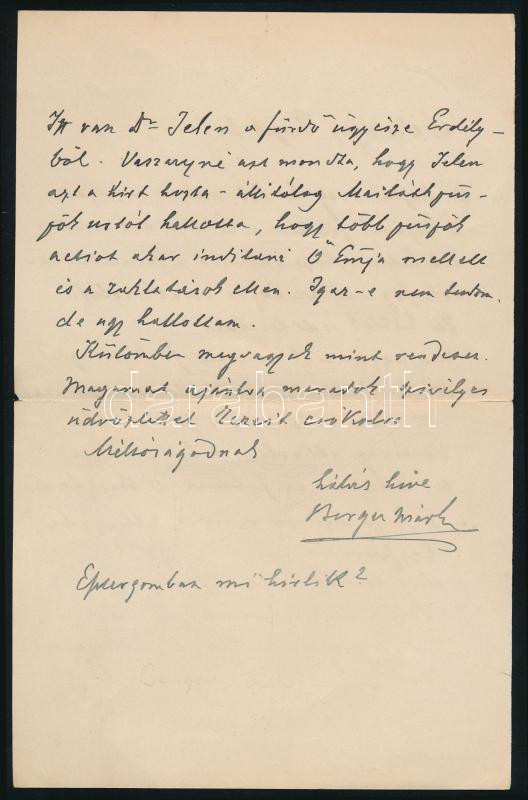 Itt van Dr Jelen a fürdő ügyésze Erdély-
ből. Vaszaryné azt mondta, hogy Jelen
azt a hírt hozta - állítólag Mailáth püs-
pök úrtól hallotta, hogy több püspök
actiot akar indítani Ő Emja mellett
és a zaklatások ellen. Igaz-e nem tudom,
de úgy hallottam.
Külömben megvagyok mint rendesen.
Magamat ajánlva maradok szivélyes
üdvözlettel Kezeit csókolva
Méltóságodnak
hálás híve
Berger Márk
Esztergomban mi hírlik?
darabanth